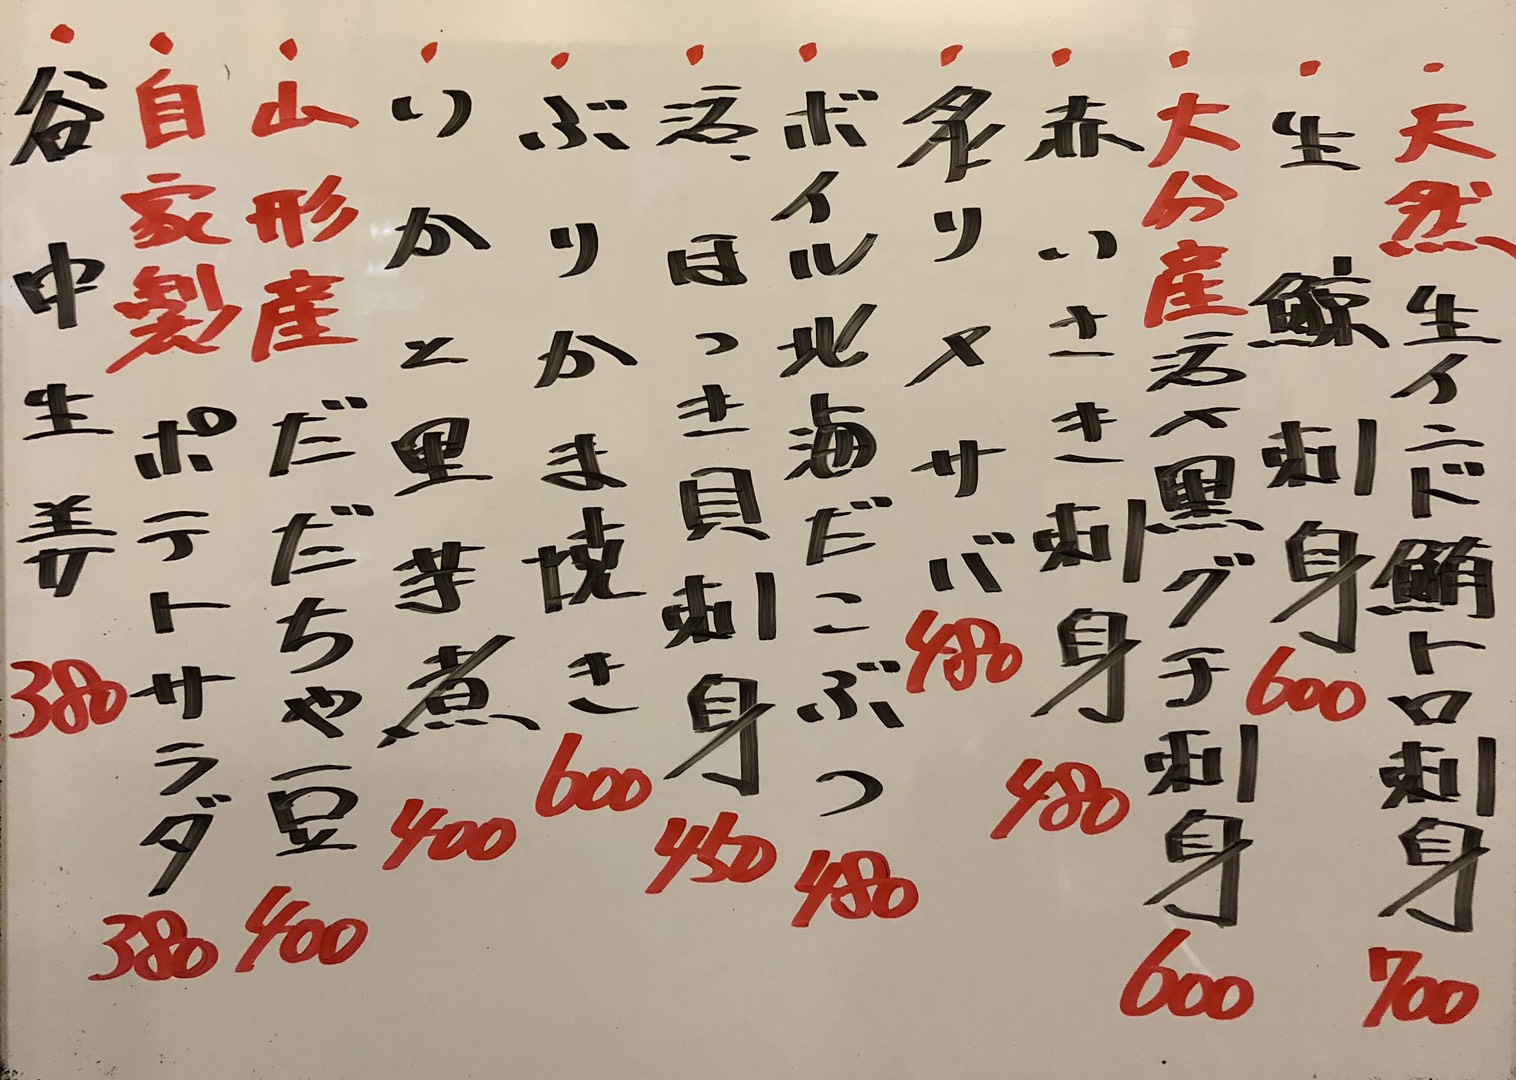 天然生インド鮪トロ刺身 700
生鯨刺身 600
大分産活〆黒グチ刺身 600
赤いさき刺身 480
炙りメサバ 480
ボイル北海だこぶつ 480
活ほっき貝刺身 450
ぶりかま焼き 600
いかと里芋煮 400
山形産だだちゃ豆 400
自家製ポテトサラダ 380
谷中生姜 380